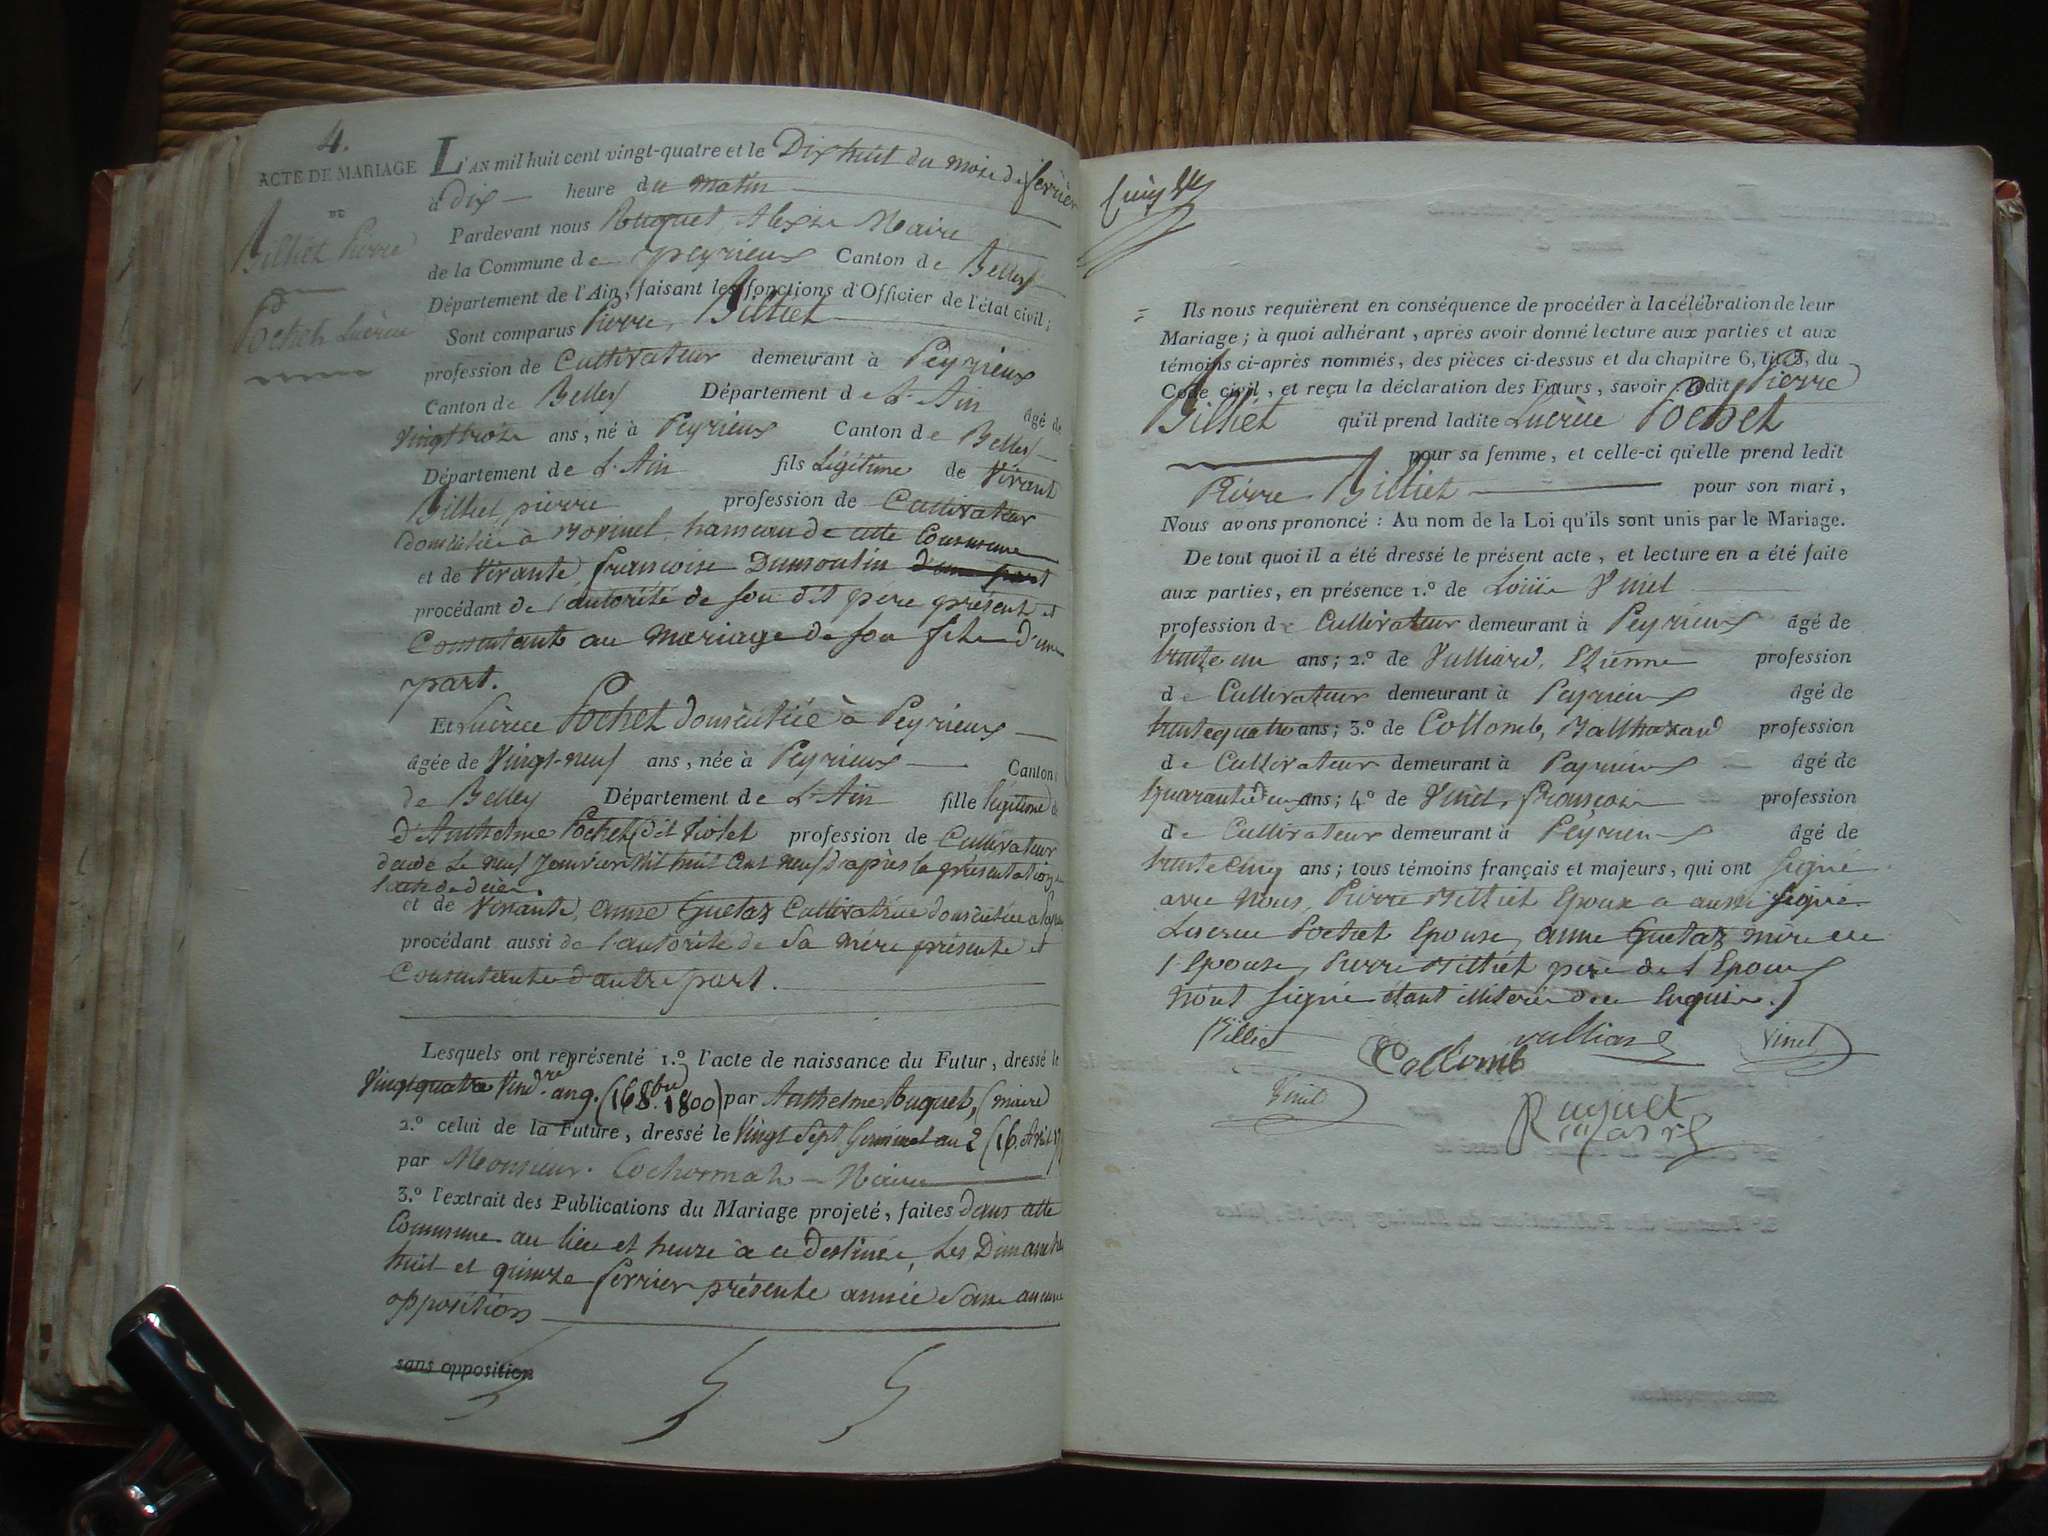 4.
ACTE DE MARIAGE
DE
Billiet Pierre
Pochet Lucrèce
L'AN mil huit cent vingt-quatre et le Dix huit du mois de fevrier
à dix heure du matin
Pardevant nous Ruquet, Alexis Maire
de la Commune de peyrieux Canton de Belley
Département de l'Ain, faisant les fonctions d'Officier de l'état civil;
Sont comparus Pierre, Billiet
profession de Cultivateur demeurant à Peyrieux
Canton de Belley Département de L'Ain âgé de
Vingt trois ans, né à Peyrieux Canton de Belley
Département de L'Ain fils Légitime de Vivant
Billiet, pierre profession de Cultivateur
domiciliée à hameau de cette Commune
et de Vivante, francoise Dumoulin d'une part
procédant de l'autorité de son dit père présent et
Consentante au mariage de son fils d'une
part.
Et Lucrèce Pochet domiciliée à Peyrieux
âgée de Vingt-neuf ans, née à Peyrieux Canton
de Belley Département de L'Ain fille légitime
d'Anthelme Pochet dit profession de Cultivateur
décédé Le neuf Janvier Mil huit Cent neuf d'après la présentation de
l'acte de décès.
et de Vivante, anne Guetaz Cultivatrice domiciliée à
procédant aussi de l'autorité de Sa mère présente et
Consentante d'autre part.
Lesquels ont représenté 1.º l'acte de naissance du Futur, dressé le
Vingt quatre Vend.re an 9. (16 8.bre 1800) par Anthelme Ruquet, (maire)
2.º celui de la Future, dressé le Vingt Sept Germinal an 2 (16 Avril
par Monsieur Maire
3.º l'extrait des Publications du Mariage projeté, faites dans cette
Commune au lieu et heure à ce destinée, Les Dimanche
huit et quinze fevrier présente année Sans aucune
opposition
sans opposition
Ils nous requièrent en conséquence de procéder à la célébration de leur
Mariage; à quoi adhérant, après avoir donné lecture aux parties et aux
témoins ci-après nommés, des pièces ci-dessus et du chapitre 6, tit. 5, du
Code civil, et reçu la déclaration des Futurs, savoir: ledit Pierre
Billiet qu'il prend ladite Lucrèce Pochet
pour sa femme, et celle-ci qu'elle prend ledit
Pierre Billiet pour son mari,
Nous avons prononcé: Au nom de la Loi qu'ils sont unis par le Mariage.
De tout quoi il a été dressé le présent acte, et lecture en a été faite
aux parties, en présence 1.º de Louis Vinet
profession de Cultivateur demeurant à Peyrieux âgé de
trente un ans; 2.º de Vulliard, Etienne profession
de Cultivateur demeurant à Peyrieux âgé de
trente quatre ans; 3.º de Collomb, Balthazard profession
de Cultivateur demeurant à Peyrieux âgé de
quarante deux ans; 4.º de Vinet, francois profession
de Cultivateur demeurant à Peyrieux âgé de
trente cinq ans; tous témoins français et majeurs, qui ont signé
avec Nous, Pierre Billiet Epoux a aussi signé
Lucrece Pochet Epouse, anne Guetaz mère de
l'Epouse, Pierre Billiet père de l'Epoux
n'ont signé étant illiterés de ce Enquis.
Billiet
Collomb
vulliard
Vinet
Vinet
Ruquet
Maire